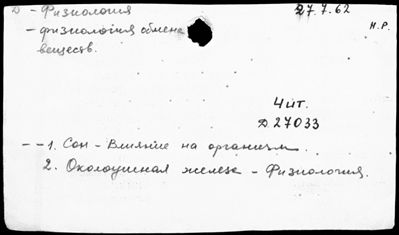 D - Физиология 27.7.62
н.р.
- физиология обмена
веществ.
Чит.
D 27033
--1. Сон - Влияние на организм.
2. Околоушная железа - Физиология.